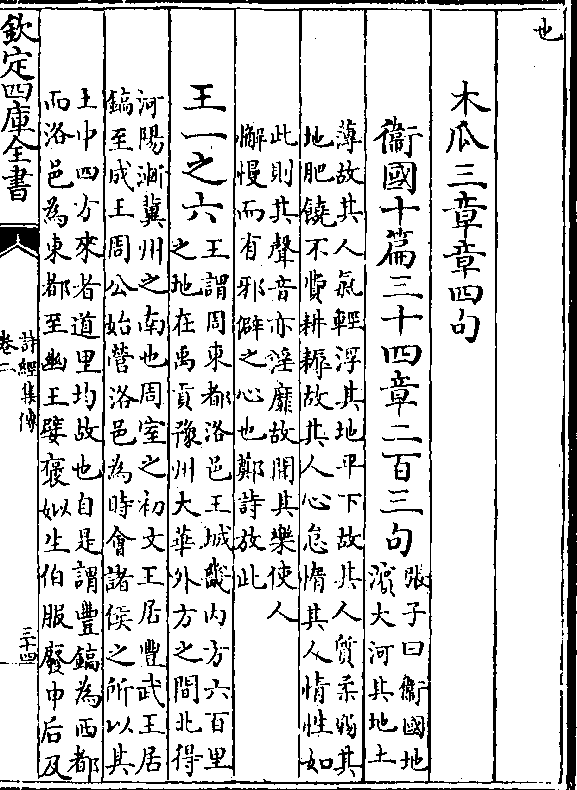 也
木瓜三章章四句
衛國十篇三十四章二百三句
張子曰衛國地
濱大河其地土
薄故其人氣輕浮其地平下故其人質柔弱其
地肥饒不費耕耨故其人心怠惰其人情性如
此則其聲音亦淫靡故聞其樂使人
懈慢而有邪僻之心也鄭詩放此
王一之六
王謂周東都洛邑王城畿内方六百里
之地在禹貢豫州大華外方之間北得
河陽漸冀州之南也周室之初文王居豐武王居
鎬至成王周公始營洛邑為時會諸侯之所以其
土中四方來者道里均故也自是謂豐鎬為西都
而洛邑為東都至幽王嬖褒姒生伯服廢申后及
欽定四庫全書
詩經集傳
卷二
三十四